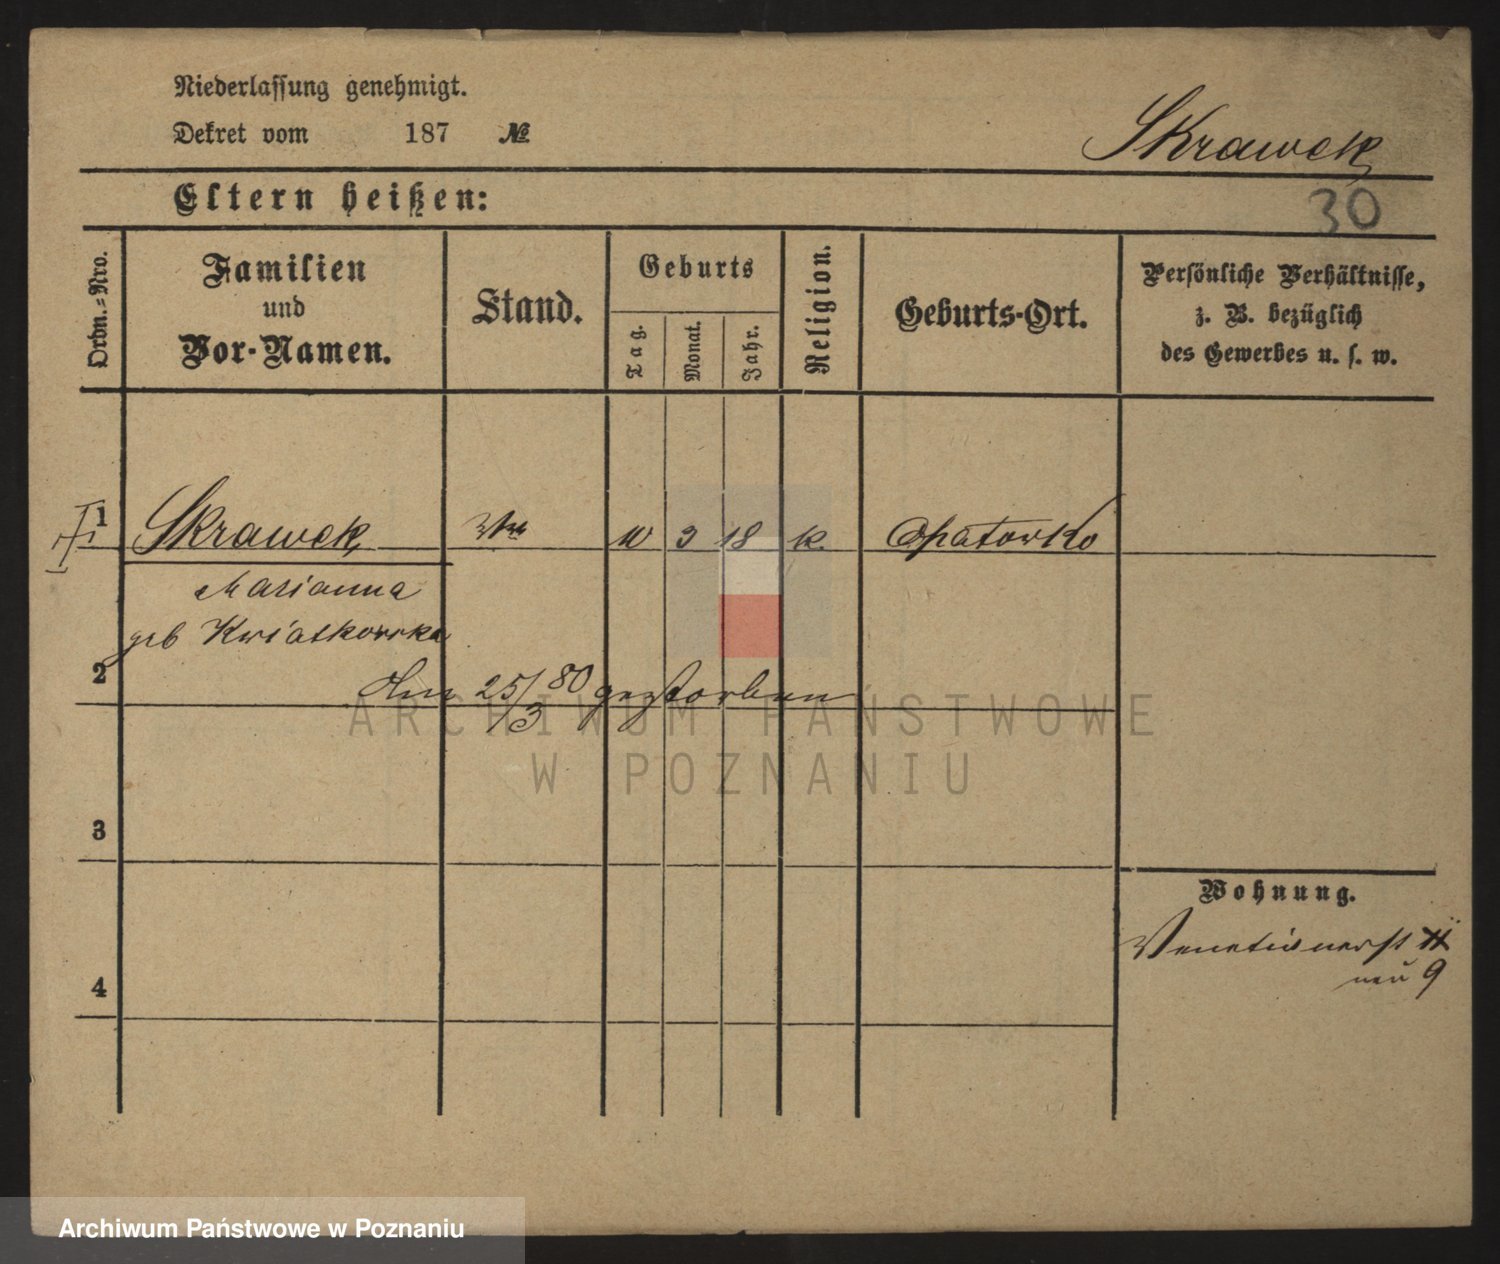 Niederlassung genehmigt.
Dekret vom 187 №
Skrawek
Eltern heißen:
30
Ordn.=Nro.
Familien
und
Vor-Namen.
Stand.
Geburts
Tag.
Monat.
Jahr.
Religion.
Geburts-Ort.
Persönliche Verhältnisse,
z. B. bezüglich
des Gewerbes u. s. w.
1 Skrawek 10 3 18 k. Opatowko
Marianna
geb Kwiatkowska
2
den 25/3 80 gestorben
ARCHIWUM PAŃSTWOWE
W POZNANIU
3
Wohnung.
Venetianerst
neu 9
4
Archiwum Państwowe w Poznaniu